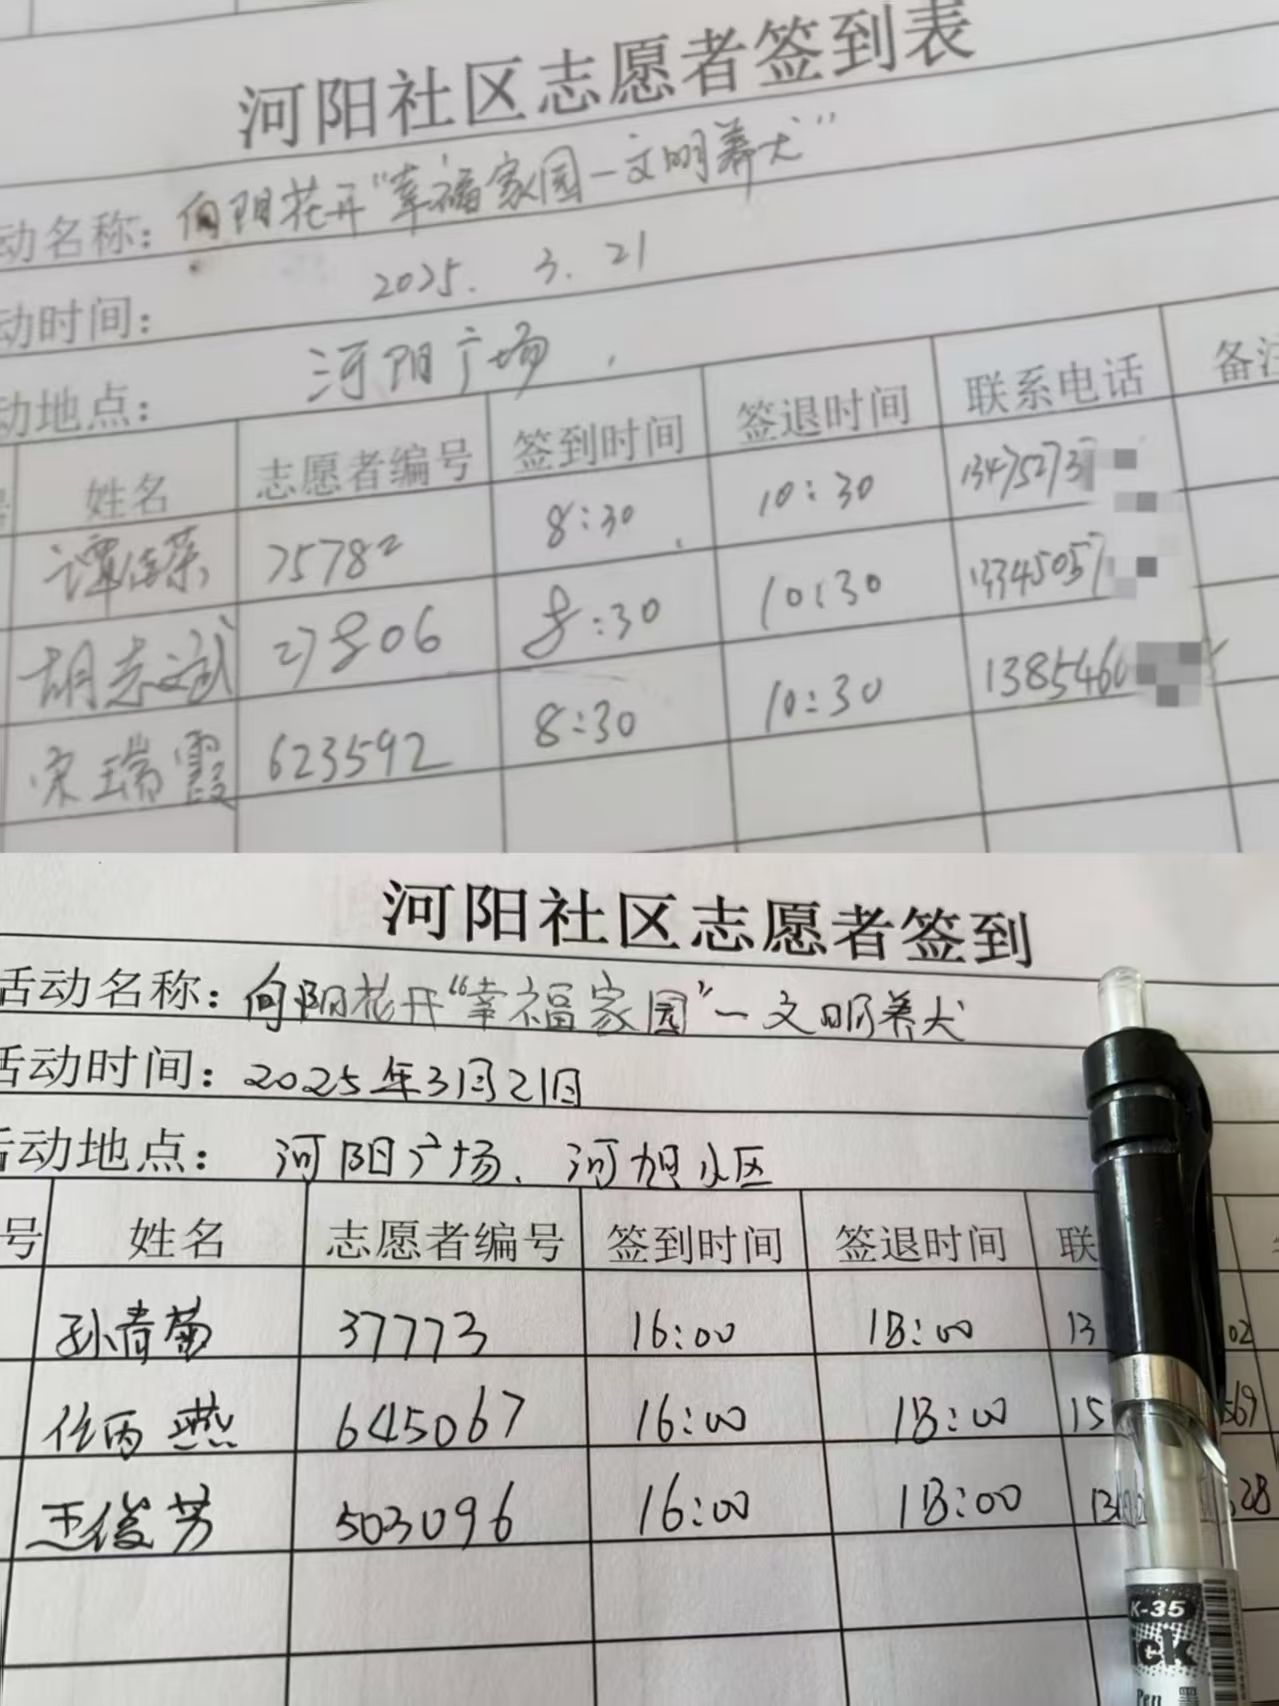 河阳社区志愿者签到表
动名称：向阳花开“幸福家园一文明养犬”
动时间： 2025. 3. 21
动地点： 河阳广场
姓名 志愿者编号 签到时间 签退时间 联系电话 备注
谭佳荣 25782 8:30 10:30 13475273
胡志斌 27806 8:30 10:30 13345057
宋瑞霞 623592 8:30 10:30 1385460
河阳社区志愿者签到
活动名称：向阳花开“幸福家园”一文明养犬
活动时间：2025年3月21日
活动地点： 河阳广场、河旭小区
号 姓名 志愿者编号 签到时间 签退时间 联
孙青菊 37773 16:00 18:00 13 02
任丙燕 645067 16:00 18:00 15 569
王俊芳 503096 16:00 18:00 13 28
K-35
Pen